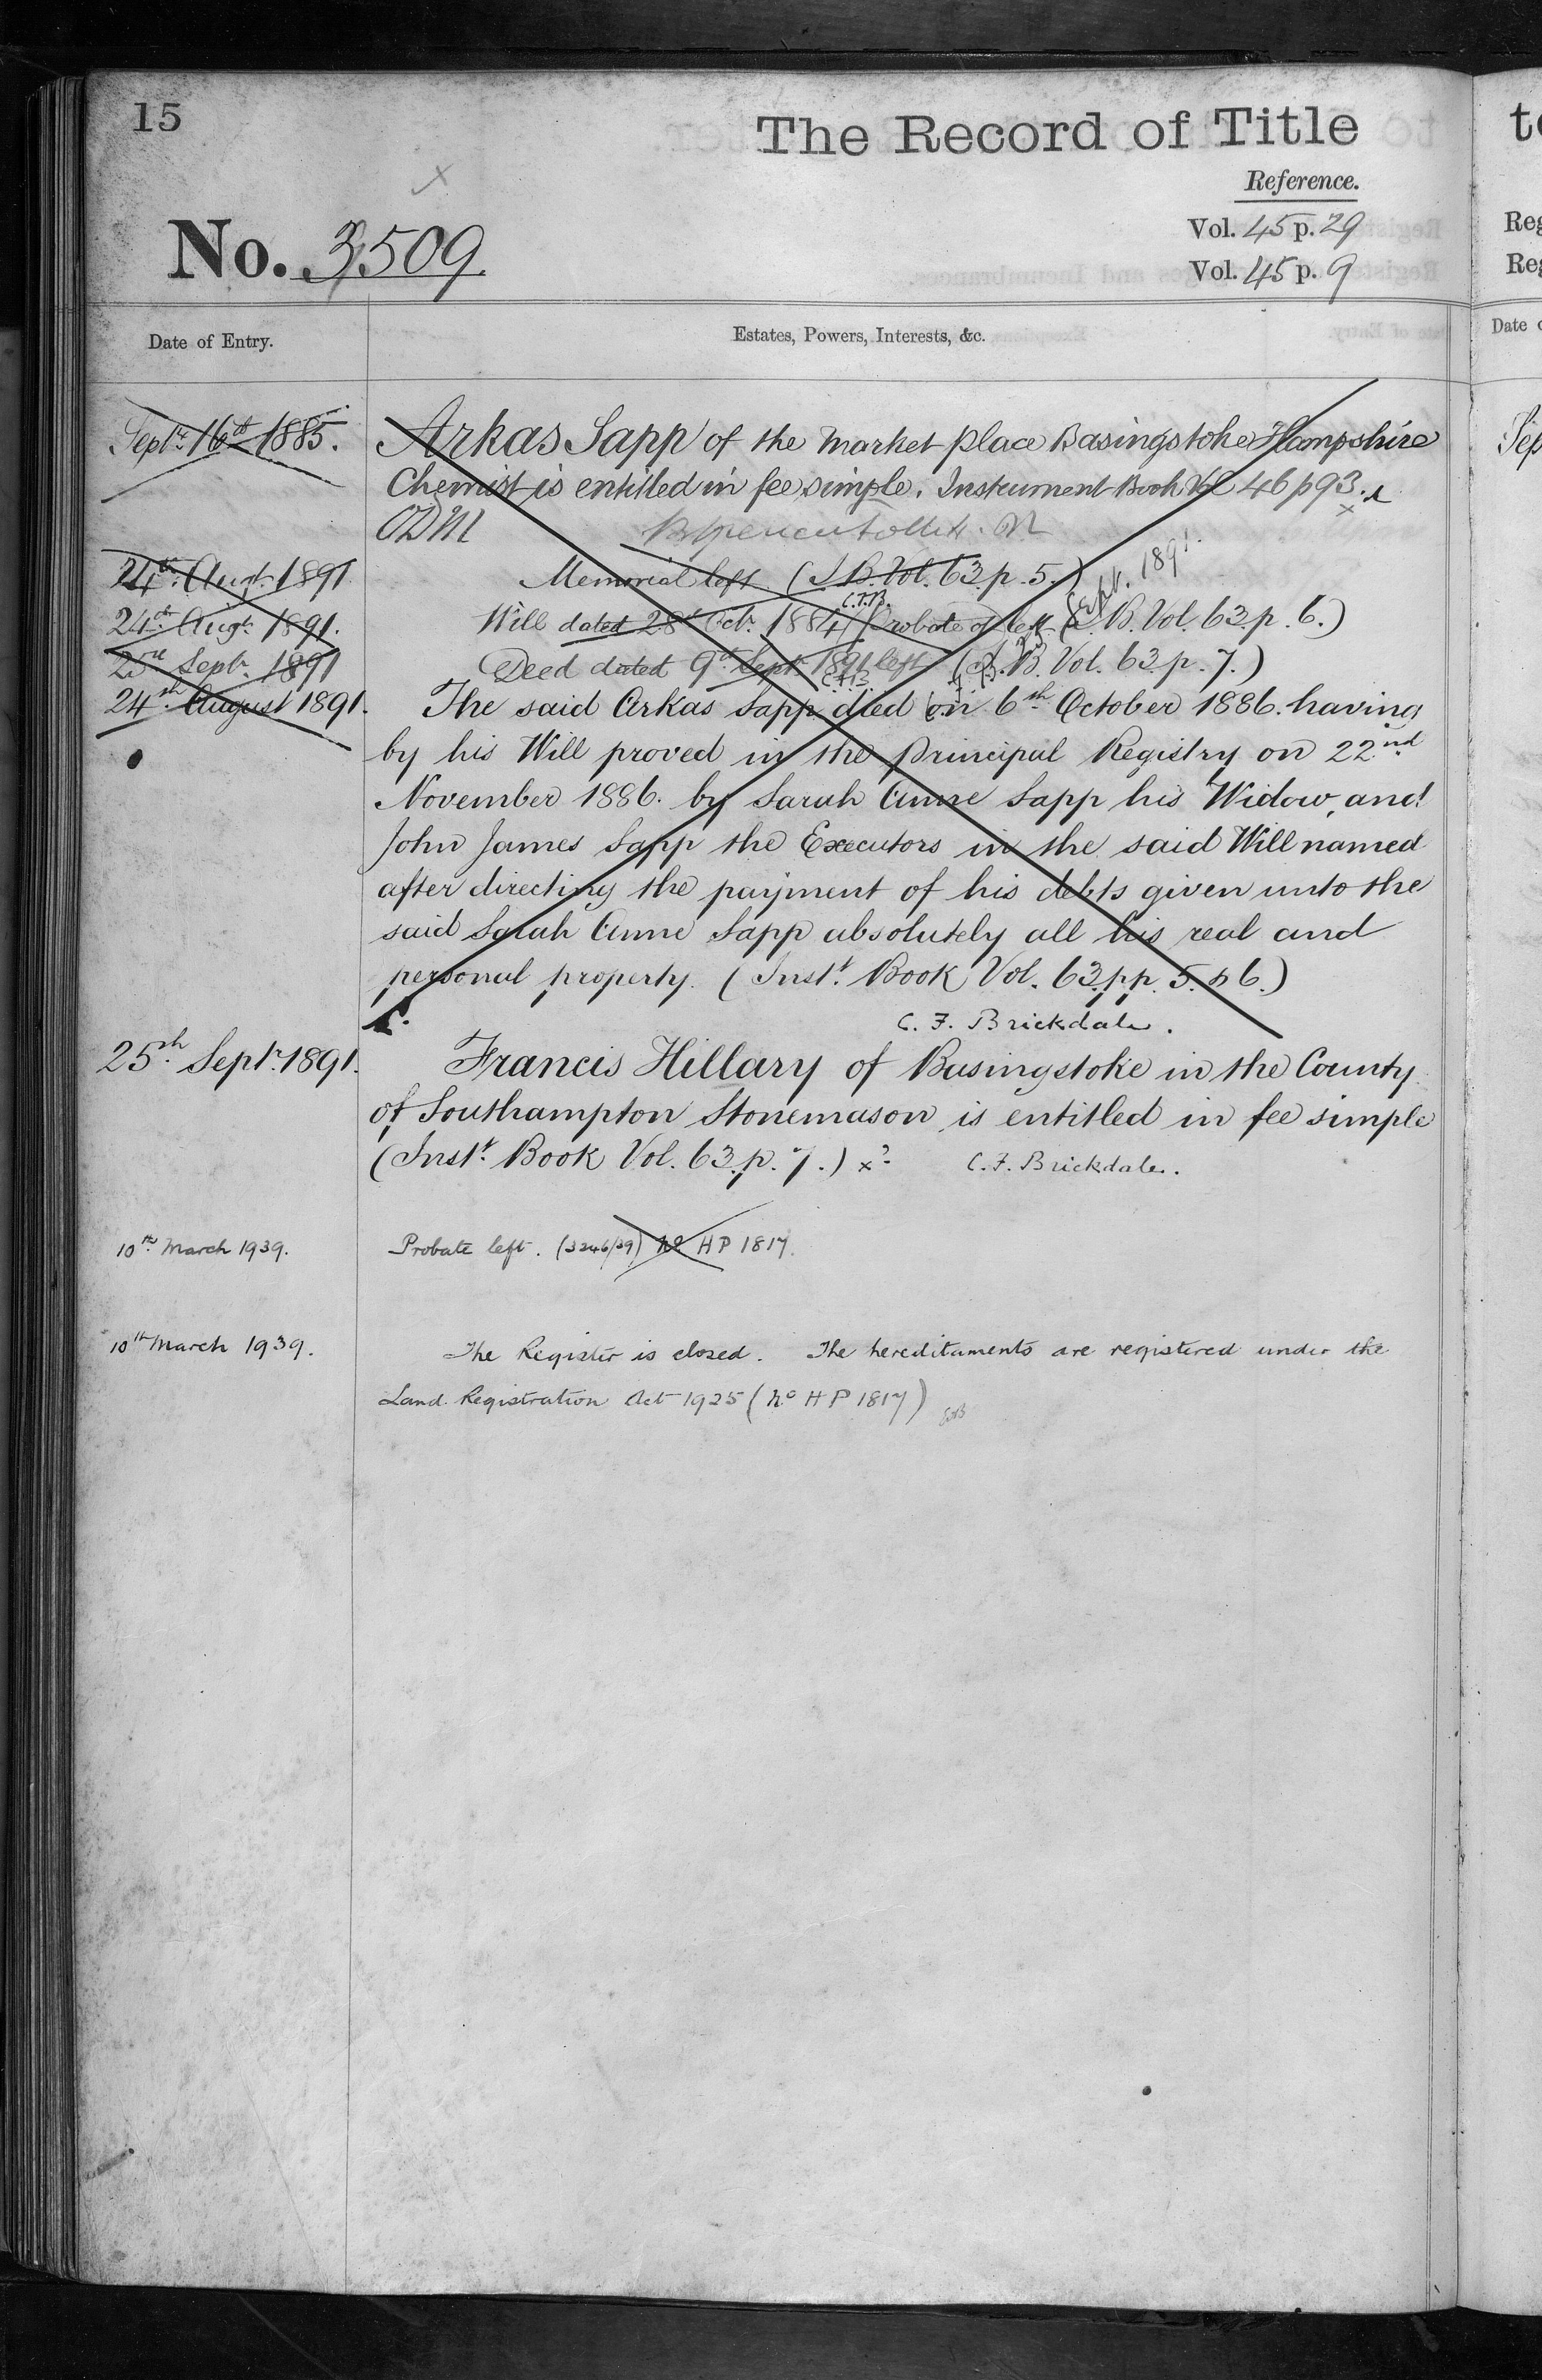 15
The Record of Title
Reference.
No. 3,509.
Vol. 45 p. 29
Vol. 45 p. 9
Date of Entry.
Estates, Powers, Interests, &c.
Septr. 16th 1885.
Arkas Sapp of the Market place Basingstoke Hampshire
Chemist is entitled in fee simple. Instrument Book Vol 46 p 93.
24th Augt. 1891
Memorial left (I.B. Vol. 63. p. 5.)
C.F.B.
Sept. 1891.
24th Augt. 1891.
Will dated 28th Octr. 1884 (Probate of) left (I.B. Vol. 63. p. 6.)
25th Septr. 1891
Deed dated 9th Septr. 1891 left (I.B. Vol. 63. p. 7.)
C.F.B.
24th August 1891.
The said Arkas Sapp died on 6th October 1886. having
by his Will proved in the Principal Registry on 22nd
November 1886. by Sarah Anne Sapp his Widow, and
John James Sapp the Executors in the said Will named
after directing the payment of his debts given unto the
said Sarah Anne Sapp absolutely all his real and
personal property. (Inst. Book Vol. 63. pp. 5. & 6.)
C. F. Brickdale.
25th Septr. 1891.
Francis Hillary of Basingstoke in the County
of Southampton Stonemason is entitled in fee simple
(Inst. Book Vol. 63. p. 7.) x
C. F. Brickdale.
10th March 1939.
Probate left. (3246/39) No HP 1817.
10th March 1939.
The Register is closed. The hereditaments are registered under the
Land Registration Act 1925 (No HP 1817)
to
Reg
Reg
Date o
Sep